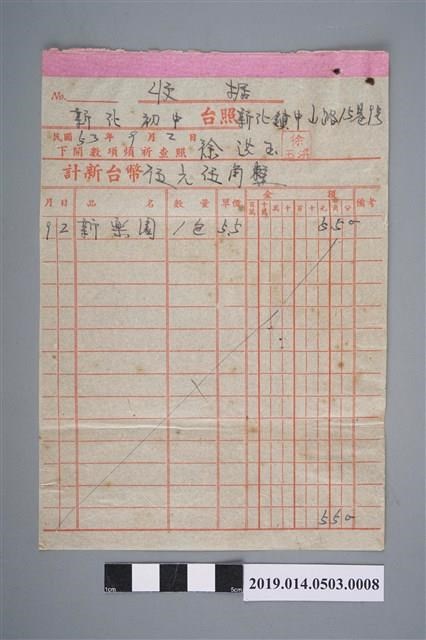 No. 收 據
新化初中 台照 新化鎮中山路15巷9号
民國53年9月2日
下開數項煩祈查照 徐洪玉
計新台幣伍元伍角整
月 日 品名 數量 單價 金額 備考
百萬 十萬 萬 千 百 十 元 角 分
9 2 新樂園 1包 5.5 5 5 0
5 5 0
1cm 5cm
2019.014.0503.0008